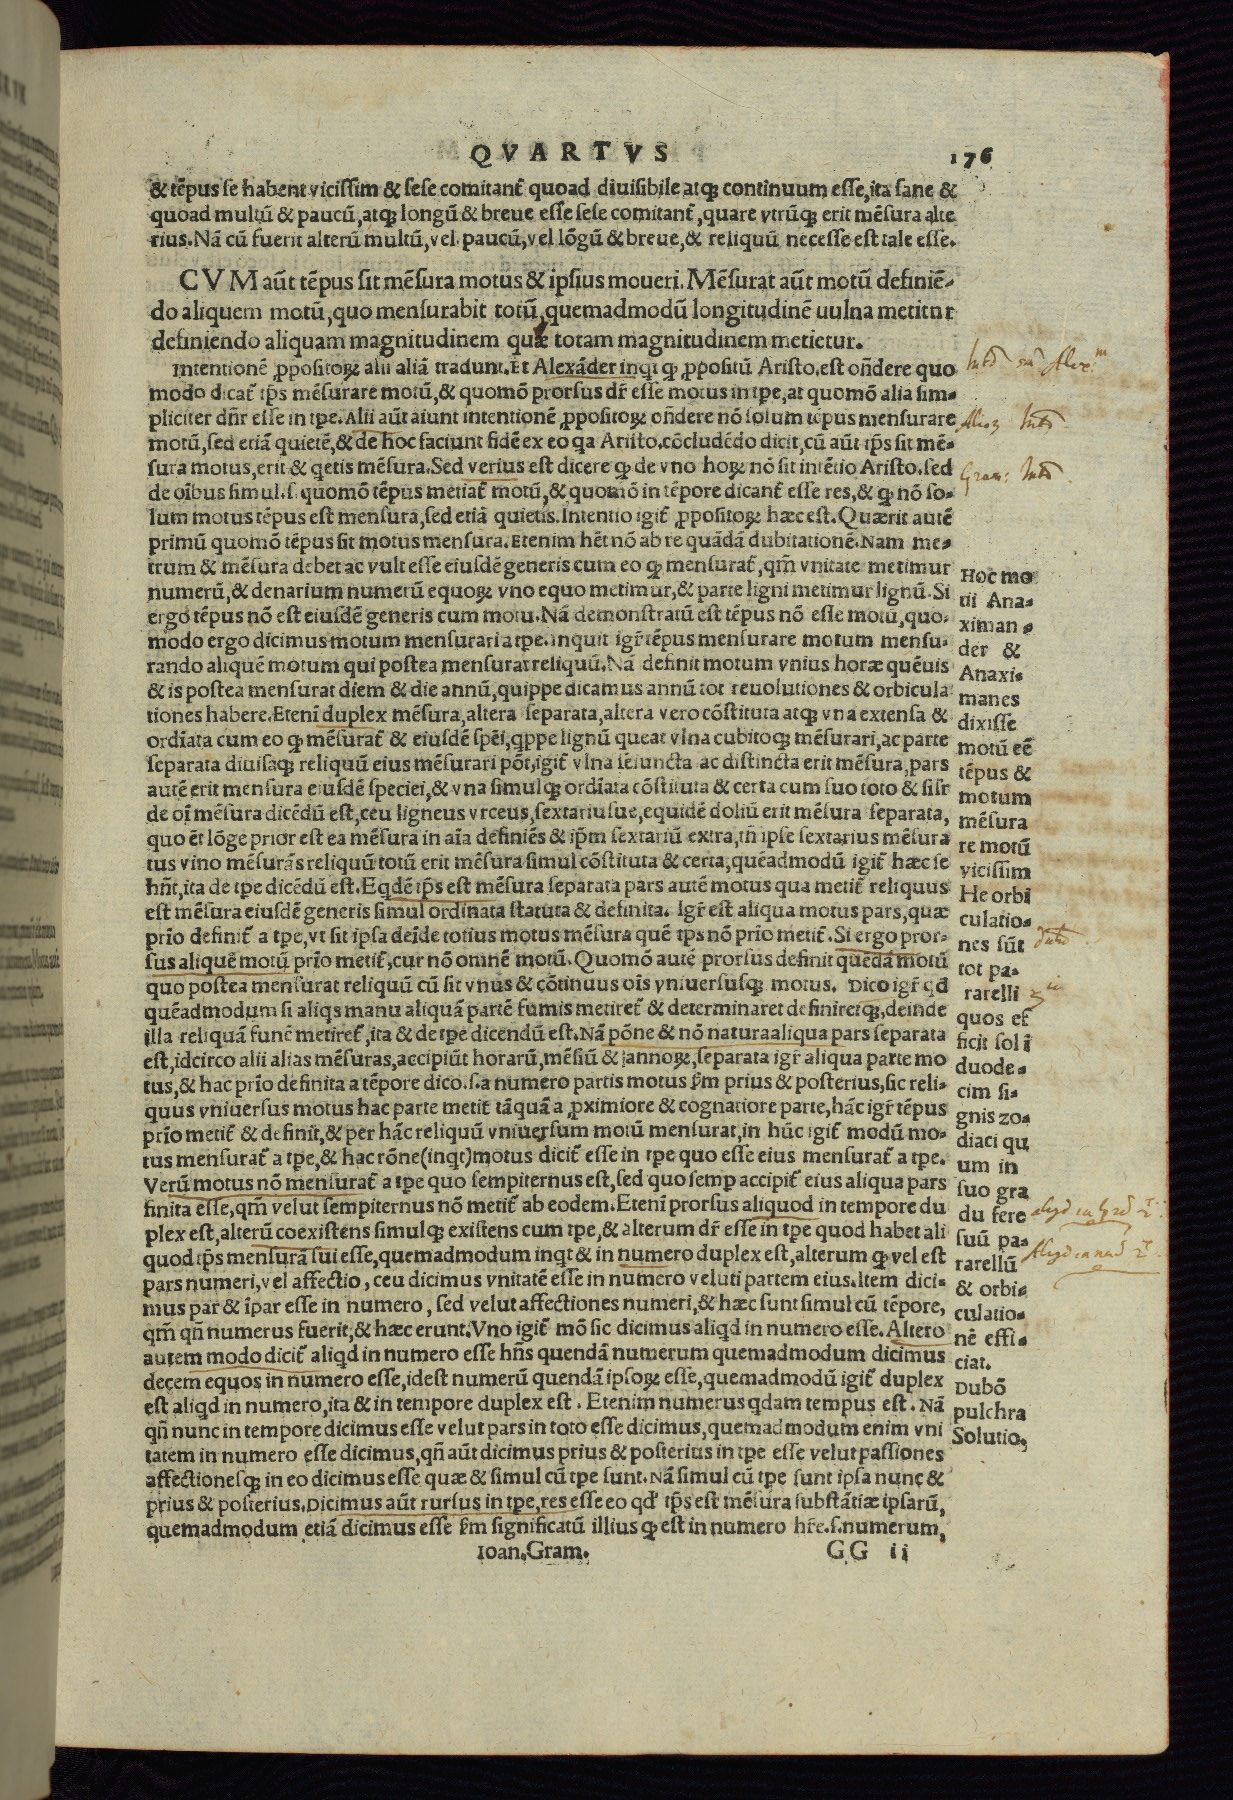 QVARTVS 176
& tēpus se habent vicissim & sese comitant̄ quoad diuisibile atqʒ continuum esse, ita sane &
quoad multū & paucū, atqʒ longū & breue esse sese comitant̄, quare vtrūqʒ erit mēsura alte
rius. Nā cū fuerit alterū multū, vel paucū, vel lōgū & breue, & reliquū necesse est tale esse.
CVM aūt tēpus sit mēsura motus & ipsius moueri. Mēsurat aūt motū definiē-
do aliquem motū, quo mensurabit totū, quemadmodū longitudinē uulna metitur
definiendo aliquam magnitudinem quæ totam magnitudinem metietur.
Intentionē ꝓpositoꝝ alii aliā tradunt. Et Alexāder inqt qꝫ ꝓpositū Aristo. est oñdere quo
modo dicat̄ tp̄s mēsurare motū, & quomō prorsus dr̄ esse motus in tpe, at quomō alia sim-
pliciter dn̄r esse in tpe. Alii aūt aiunt intentionē ꝓpositoꝝ oñdere nō solum tēpus mensurare
motū, sed etiā quietē, & de hoc faciunt fidē ex eo qa Aristo. cōcludēdo dicit, cū aūt tp̄s sit mē-
sura motus, erit & qetis mēsura. Sed verius est dicere qꝫ de vno hoꝝ nō sit intētio Aristo. sed
de oībus simul. s. quomō tēpus metiat̄ motū, & quomō in tēpore dicant̄ esse res, & qꝫ nō so-
lum motus tēpus est mensura, sed etiā quietis. Intentio igit̄ ꝓpositoꝝ hæc est. Quærit autē
primū quomō tēpus sit motus mensura. Etenim hēt nō ab re quādā dubitationē. Nam me-
trum & mēsura debet ac vult esse eiusdē generis cum eo qꝫ mensurat̄, qm̄ vnitate metimur
numerū, & denarium numerū equoꝝ vno equo metimur, & parte ligni metimur lignū. Si
ergo tēpus nō est eiusdē generis cum motu. Nā demonstratū est tēpus nō esse motū, quo-
modo ergo dicimus motum mensurari a tpe. inquit igr̄ tēpus mensurare motum mensu-
rando aliquē motum qui postea mensurat reliquū. Nā definit motum vnius horæ quēuis
& is postea mensurat diem & die annū, quippe dicamus annū tot reuolutiones & orbicula
tiones habere. Etenī duplex mēsura, altera separata, altera vero cōstituta atqʒ vna extensa &
ordīata cum eo qꝫ mēsurat̄ & eiusdē spēi, qppe lignū queat vlna cubitoqʒ mēsurari, ac parte
separata diuisaqʒ reliquū eius mēsurari pōt, igit̄ vlna seiuncta ac distincta erit mēsura, pars
autē erit mensura eiusdē speciei, & vna simulqʒ ordīata cōstituta & certa cum suo toto & sisr
de oī mēsura dicēdū est, ceu ligneus vrceus, sextarius ue, equidē doliū erit mēsura separata,
quo ēt lōge prior est ea mēsura in aīa definiēs & ip̄m sextariū extra, tn̄ ipse sextarius mēsura
tus vino mēsurās reliquū totū erit mēsura simul cōstituta & certa, quēadmodū igit̄ hæc se
hn̄t, ita de tpe dicēdū est. Eqdē tp̄s est mēsura separata pars autē motus qua metit̄ reliquus
est mēsura eiusdē generis simul ordinata statuta & definita. Igr̄ est aliqua motus pars, quæ
prīo definit̄ a tpe, vt sit ipsa deīde totius motus mēsura quē tp̄s nō prīo metit̄. Si ergo pror-
sus aliquē motū prīo metit̄, cur nō omnē motū. Quomō autē prorsus definit quēdā motū
quo postea mensurat reliquū cū sit vnus & cōtinuus oīs vniuersusqʒ motus. Dico igr̄ qd
quēadmodum si aliqs manu aliquā partē funis metiret̄ & determinaret definiretqʒ, deinde
illa reliquā funē metiret̄, ita & de tpe dicendū est. Nā pōne & nō natura aliqua pars separata
est, idcirco alii alias mēsuras, accipiūt horarū, mēsiū & annoꝝ, separata igr̄ aliqua parte mo
tus, & hac prīo definita a tēpore dico. s. a numero partis motus s̄m prius & posterius, sic reli-
quus vniuersus motus hac parte metit̄ tāquā a ꝓximiore & cognatiore parte, hāc igr̄ tēpus
prīo metit̄ & definit, & per hāc reliquū vniuersum motū mensurat, in hūc igit̄ modū mo-
tus mensurat̄ a tpe, & hac rōne (inqt) motus dicit̄ esse in tpe quo esse eius mensurat̄ a tpe.
Verū motus nō mensurat̄ a tpe quo sempiternus est, sed quo semp accipit̄ eius aliqua pars
finita esse, qm̄ velut sempiternus nō metit̄ ab eodem. Etenī prorsus aliquod in tempore du
plex est, alterū coexistens simulqʒ existens cum tpe, & alterum dr̄ esse in tpe quod habet ali
quod tp̄s mensurā sui esse, quemadmodum inqt & in numero duplex est, alterum qꝫ vel est
pars numeri, vel affectio, ceu dicimus vnitatē esse in numero veluti partem eius. Item dici-
mus par & īpar esse in numero, sed velut affectiones numeri, & hæc sunt simul cū tēpore,
qm̄ qn̄ numerus fuerit, & hæc erunt. Vno igit̄ mō sic dicimus aliqd in numero esse. Altero
autem modo dicit̄ aliqd in numero esse hn̄s quendā numerum quemadmodum dicimus
decem equos in numero esse, idest numerū quendā ipsoꝝ esse, quemadmodū igit̄ duplex
est aliqd in numero, ita & in tempore duplex est. Etenim numerus qdam tempus est. Nā
qn̄ nunc in tempore dicimus esse velut pars in toto esse dicimus, quemadmodum enim vni
tatem in numero esse dicimus, qn̄ aūt dicimus prius & posterius in tpe esse velut passiones
affectionesqʒ in eo dicimus esse quæ & simul cū tpe sunt. Nā simul cū tpe sunt ipsa nunc &
prius & posterius. Dicimus aūt rursus in tpe, res esse eo qd' tp̄s est mēsura substātiæ ipsarū,
quemadmodum etiā dicimus esse s̄m significatū illius qꝫ est in numero hr̄e. s. numerum,
Ioan. Gram. GG ii
Hoc mo
tū Ana-
ximan-
der &
Anaxi-
manes
dixisse
motū eē
tēpus &
motum
mēsura
re motū
vicissim
He orbi
culatio-
nes sūt
tot pa-
rarelli
quos ef
ficit sol ī
duode-
cim si-
gnis zo-
diaci qu
um in
suo gra
du fere
suū pa-
rarellū
& orbi-
culatio-
nē effi-
ciat.
Dubō
pulchra
Solutio,